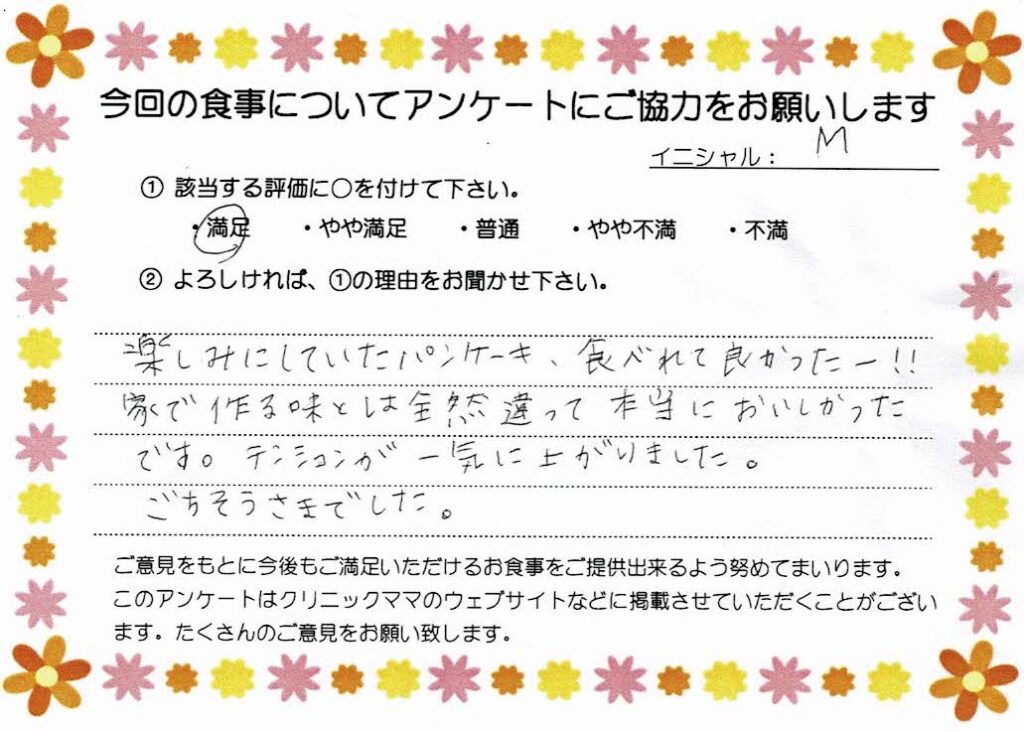 今回の食事についてアンケートにご協力をお願いします
イニシャル： M
① 該当する評価に○を付けて下さい。
・満足 ・やや満足 ・普通 ・やや不満 ・不満
② よろしければ、①の理由をお聞かせ下さい。
楽しみにしていたパンケーキ、食べれて良かったー!!
家で作る味とは全然違って本当においしかった
です。テンションが一気に上がりました。
ごちそうさまでした。
ご意見をもとに今後もご満足いただけるお食事をご提供出来るよう努めてまいります。
このアンケートはクリニックママのウェブサイトなどに掲載させていただくことがござい
ます。たくさんのご意見をお願い致します。